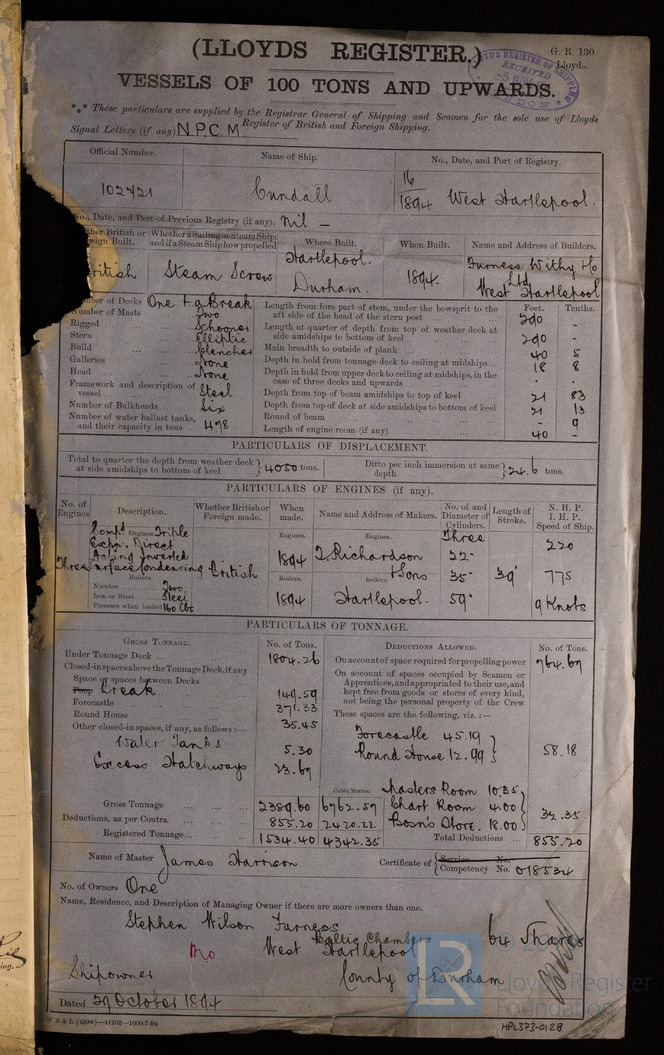 (LLOYDS REGISTER.)
G. R 130
Lloyds.
LLOYD'S REGISTER OF SHIPPING
RECEIVED
-5 NOV
LONDON
VESSELS OF 100 TONS AND UPWARDS.
*** These particulars are supplied by the Registrar General of Shipping and Seamen for the sole use of Lloyds
Register of British and Foreign Shipping.
Signal Letters (if any) N.P.C.M.
Official Number. Name of Ship. No., Date, and Port of Registry.
102421 Cundall 16/1894 West Hartlepool.
No., Date, and Port of Previous Registry (if any). Nil —
ther British or eign Built. Whether a Sailing or Steam Ship; and if a Steam Ship how propelled Where Built. When Built. Name and Address of Builders.
British Steam Screw Hartlepool. Durham. 1894. Furness Withy & Co Ltd West Hartlepool
Number of Decks One & a Break
Number of Masts Two
Rigged Schooner
Stern Elliptic
Build Clencher
Galleries None
Head None
Framework and description of vessel Steel
Number of Bulkheads Six
Number of water ballast tanks, and their capacity in tons 478
Feet. Tenths.
Length from fore part of stem, under the bowsprit to the aft side of the head of the stern post 290 -
Length at quarter of depth from top of weather deck at side amidships to bottom of keel 290 -
Main breadth to outside of plank 40 5
Depth in hold from tonnage deck to ceiling at midships 18 8
Depth in hold from upper deck to ceiling at midships, in the case of three decks and upwards . .
Depth from top of beam amidships to top of keel 21 83
Depth from top of deck at side amidships to bottom of keel 21 13
Round of beam - 9
Length of engine room (if any) 40 -
PARTICULARS OF DISPLACEMENT.
Total to quarter the depth from weather deck at side amidships to bottom of keel 4050 tons. Ditto per inch immersion at same depth 24.6 tons.
PARTICULARS OF ENGINES (if any).
No. of Engines. Description. Whether British or Foreign made. When made. Name and Address of Makers. No. of and Diameter of Cylinders. Length of Stroke. N. H. P. I. H. P. Speed of Ship.
Engines. Engines. Three
Comp'd Engines. Triple
Expn. Direct 220
Acting Inverted 1894 T. Richardson 22"
Three Surface Condensing British & Sons 35" 39" 775
Boilers. Boilers. Boilers.
Number Two
Iron or Steel Steel 1894 Hartlepool. 59" 9 Knots
Pressure when loaded 160 lbs
PARTICULARS OF TONNAGE.
GROSS TONNAGE. No. of Tons.
Under Tonnage Deck 1804.26
Closed-in spaces above the Tonnage Deck, if any
Space or spaces between Decks
Poop Break 149.59
Forecastle 371.33
Round House 35.45
Other closed-in spaces, if any, as follows:—
Water Tanks 5.30
Excess Hatchways 23.67
Cubic Metres.
Gross Tonnage 2389.60 6762.57
Deductions, as per Contra 855.20 2420.22
Registered Tonnage 1534.40 4342.35
DEDUCTIONS ALLOWED. No. of Tons.
On account of space required for propelling power 764.67
On account of spaces occupied by Seamen or Apprentices, and appropriated to their use, and kept free from goods or stores of every kind, not being the personal property of the Crew
These spaces are the following, viz.:—
Forecastle 45.19
Round House 12.99 58.18
Masters Room 10.35
Chart Room 4.00
Bosn's Store. 18.00 32.35
Total Deductions 855.20
Name of Master James Harrison
Certificate of Service No. Competency No. 018534
No. of Owners One
Name, Residence, and Description of Managing Owner if there are more owners than one.
Stephen Wilson Furness
Baltic Chambers 64 Shares
Mo West Hartlepool
Shipowner County of Durham
Dated 29 October 1894
W B & L (439w)—41262—1000-7-94
HPL373-0128
LR
Lloyd's Register
Foundation